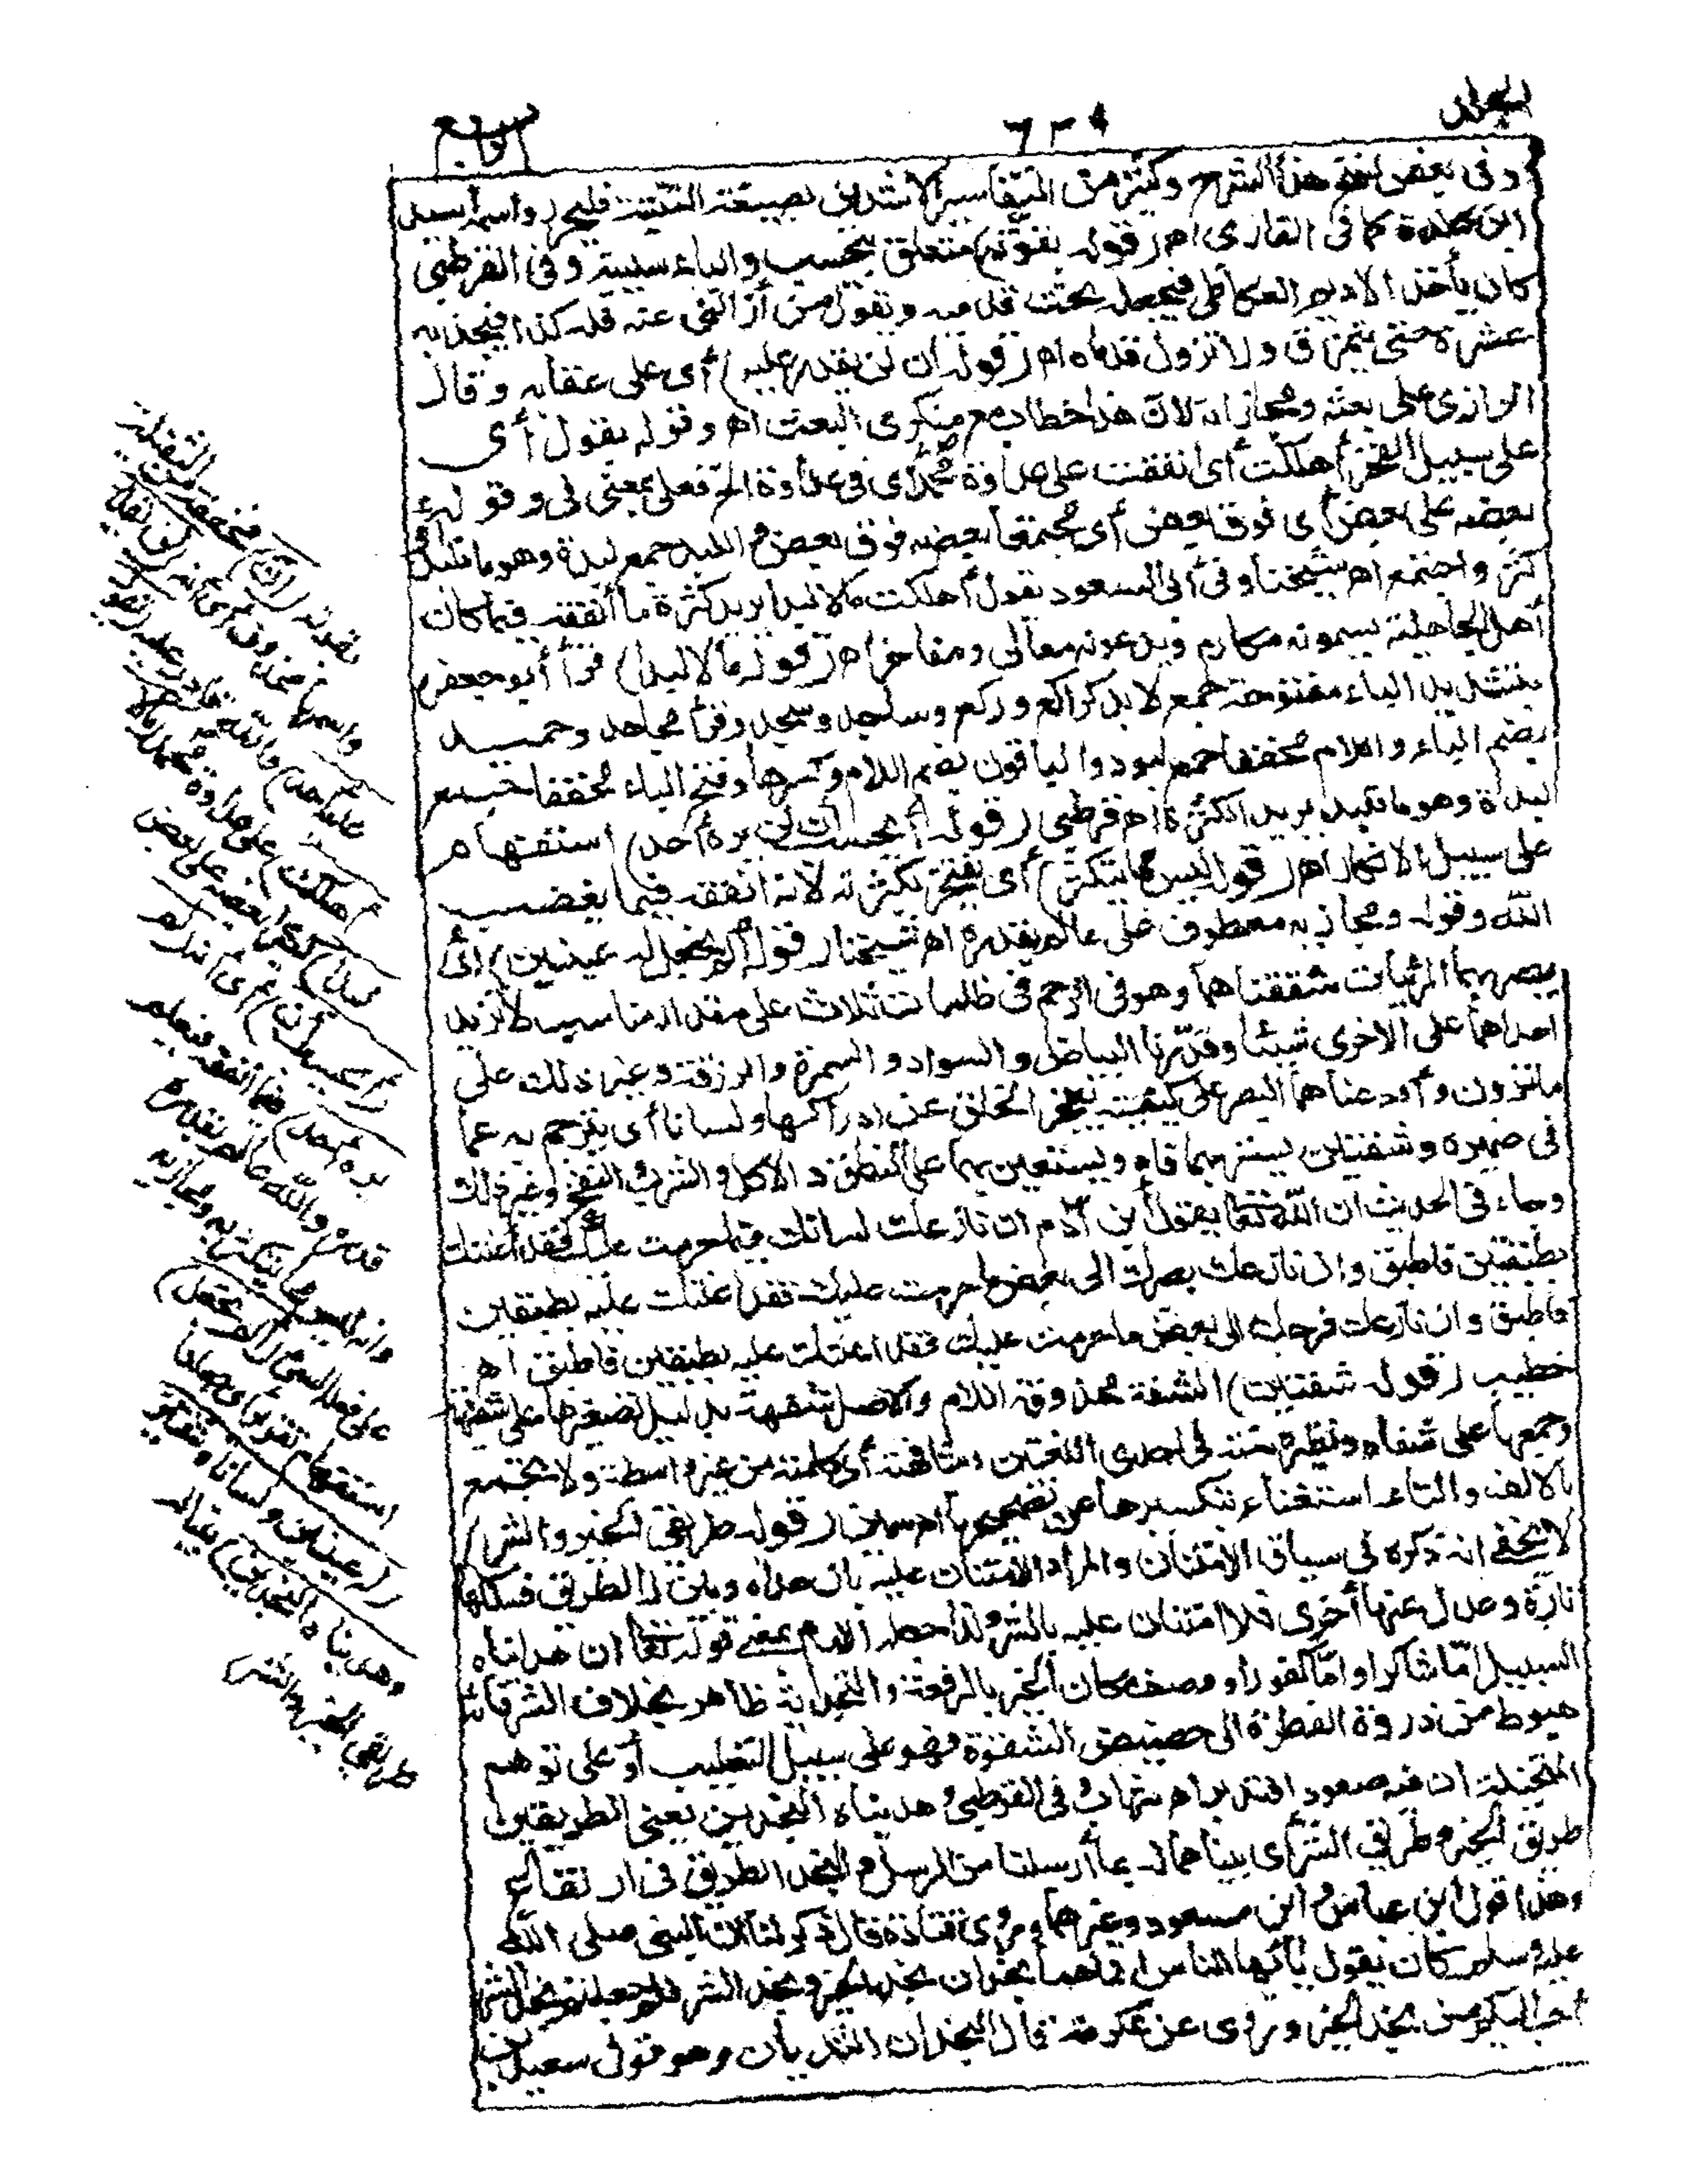 الرابع
وفى بعض نسخ هذا الشرح وكثير من التفاسير الاشدين بصيغة التثنية فليحرر واسمه أسيد
ابن كلدة كما فى القارى اه (قوله بقوته) متعلق بيحسب والباء سببية وفى القرطبى
كان يأخذ الاديم العكاظى فيجعله تحت قدميه ويقول من أزالنى عنه فله كذا فيجذبه
عشرة حتى يتمزق ولا تزول قدماه اه (قوله أن لن يقدر عليه) أى على عقابه وقال
الرازى على بعثه ومجازاته لان هذا خطاب مع منكرى البعث اه وقوله يقول أى
على سبيل الفخر أهلكت أى انفقت على عداوة محمد أى فى عداوة الخ فعلى بمعنى فى وقوله
بعضه على بعض أى فوق بعض أى مجتمعا بعضه فوق بعض واللبد جمع لبدة وهو ما تلبد أى
كثر واجتمع اه شيخنا وفى أبى السعود يقول أهلكت مالا لبدا يريد كثرة ما أنفقه فيما كان
أهل الجاهلية يسمونه مكارم ويدعونه معالى ومفاخر اه (قوله مالا لبدا) قرأ أبو جعفر
بتشديد الباء مفتوحة جمع لابد كراكع وركع وساجد وسجد وقرأ مجاهد وحميد
بضم الباء واللام مخففا جمع لبود والباقون بضم اللام وكسرها وفتح الباء مخففا جمع
لبدة وهو ما تلبد يريد الكثرة اه قرطبى (قوله أيحسب أن لن يره أحد) استفهام
على سبيل الانكار اه (قوله ليس مما يتكثر) أى يفتخر بكثرته لانه انفقه فيما يغضب
الله وقوله ومجازيه معطوف على عالم بقدره اه شيخنا (قوله ألم نجعل له عينين) أى
يبصر بهما المرئيات شققناهما وهو فى الرحم فى ظلمات ثلاث على مقدار مناسب لا تزيد
احداهما على الاخرى شيئا وقدرنا البياض والسواد والسمرة والزرقة وغير ذلك على
ما ترون وأودعناهما البصر على كيفية يعجز الخلق عن ادراكها ولسانا أى يترجم به عما
فى ضميره وشفتين يستر بهما فاه ويستعين بهما على النطق والاكل والشرب والنفخ وغير ذلك
وجاء فى الحديث ان الله تعالى يقول ابن آدم ان نازعك لسانك فيما حرمت عليك فقد أعنتك
بطبقتين فاطبق وان نازعك بصرك الى بعض ما حرمت عليك فقد أعنتك عليه بطبقتين
فاطبق وان نازعك فرجك الى بعض ما حرمت عليك فقد أعنتك عليه بطبقتين فاطبق اه
خطيب (قوله شفتين) الشفة محذوفة اللام والاصل شفهة بدليل تصغيرها على شفيهة
وجمعها على شفاه ونظيره سنة فى احدى اللغتين وشافهته أى كلمته من غير واسطة ولا تجمع
بالالف والتاء استغناء بتكسيرها عن تصحيحها اه سمين (قوله طريقى الخير والشر)
لا يخفى انه ذكره فى سياق الامتنان والمراد الامتنان عليه بان هداه وبين له الطريق فسلكها
تارة وعدل عنها أخرى فلا امتنان عليه بالشر ولذا جعله الامام بمعنى قوله تعالى انا هديناه
السبيل امّا شاكرا وامّا كفورا ووصف مكان الخير بالرفعة والنجدية ظاهر بخلاف الشر فانه
هبوط من ذروة الفطرة الى حضيض الشقوة فهو على سبيل التغليب أو على توهم
المتخيلة ان فيه صعودا فتدبر اه شهاب وفى القرطبى وهديناه النجدين يعنى الطريقين
طريق الخير وطريق الشر أى بيناهما له بما أرسلنا من الرسل والنجد الطريق فى ارتفاع
وهذا قول ابن عباس وابن مسعود وغيرهما وروى قتادة قال ذكر لنا ان النبى صلى الله
عليه وسلم كان يقول يا أيها الناس انما هما نجدان نجد الخير ونجد الشر فلم جعلتم نجد الشر
أحب اليكم من نجد الخير وروى عن عكرمة قال النجدان الثديان وهو قول سعيد بن
بقوته (أن) مخففة من الثقيلة
واسمها محذوف أى انه (لن يقدر
عليه أحد) والله قادر عليه (يقول
أهلكت) على عداوة محمد (مالا
لبدا) كثيرا بعضه على بعض
(أيحسب أن) أى انه (لم
يره أحد) فيما انفقه فيعلم
قدره والله عالم بقدره
وانه ليس مما يتكثر به ومجازيه
على فعله السيئ (ألم نجعل)
استفهام تقرير أى جعلنا
(له عينين ولسانا وشفتين
وهديناه النجدين) بيناله
طريقى الخير والشر